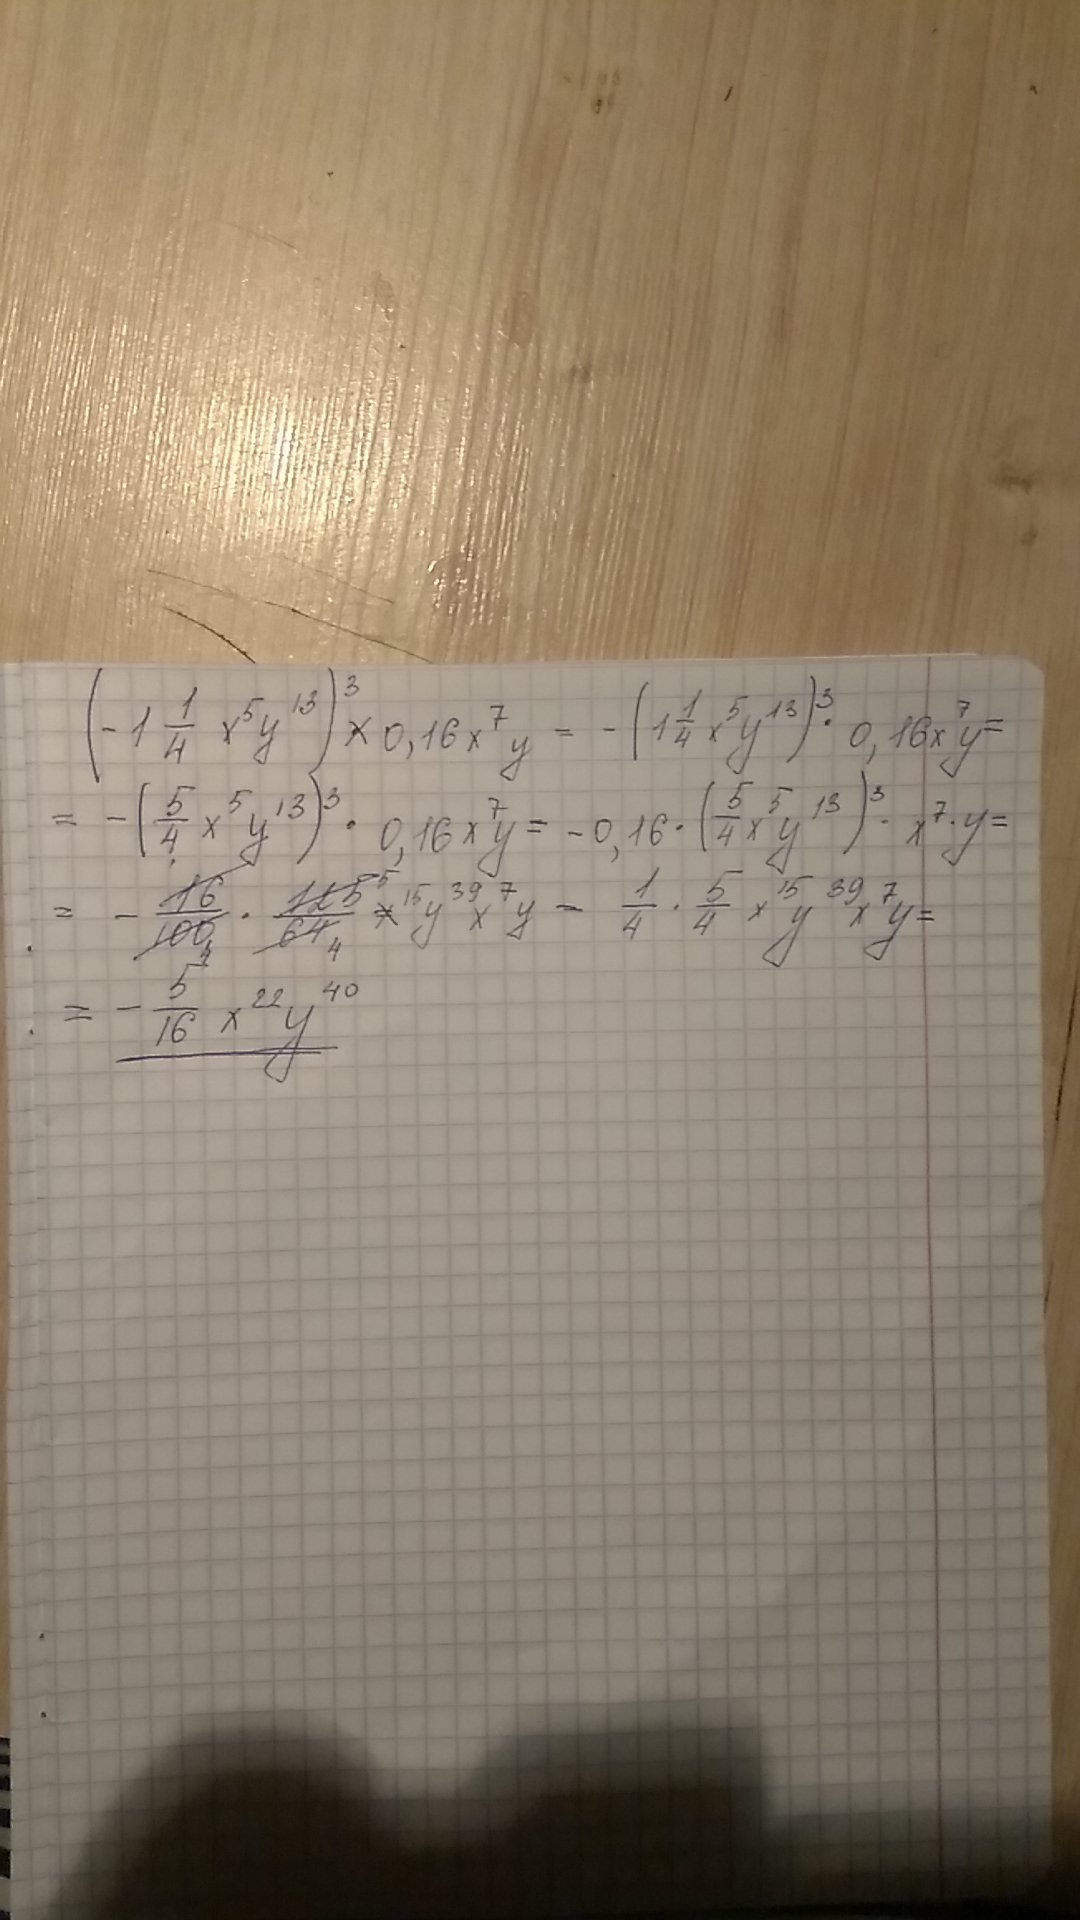 (-1 1/4 x^5 y^13)^3 × 0,16x^7 y = -(1 1/4 x^5 y^13)^3 · 0,16x^7 y =
= -(5/4 x^5 y^13)^3 · 0,16x^7 y = -0,16 · (5/4 x^5 y^13)^3 · x^7 · y =
= - 16/100 4 · 125 5/64 4 x^15 y^39 x^7 y = 1/4 · 5/4 x^15 y^39 x^7 y =
= - 5/16 x^22 y^40